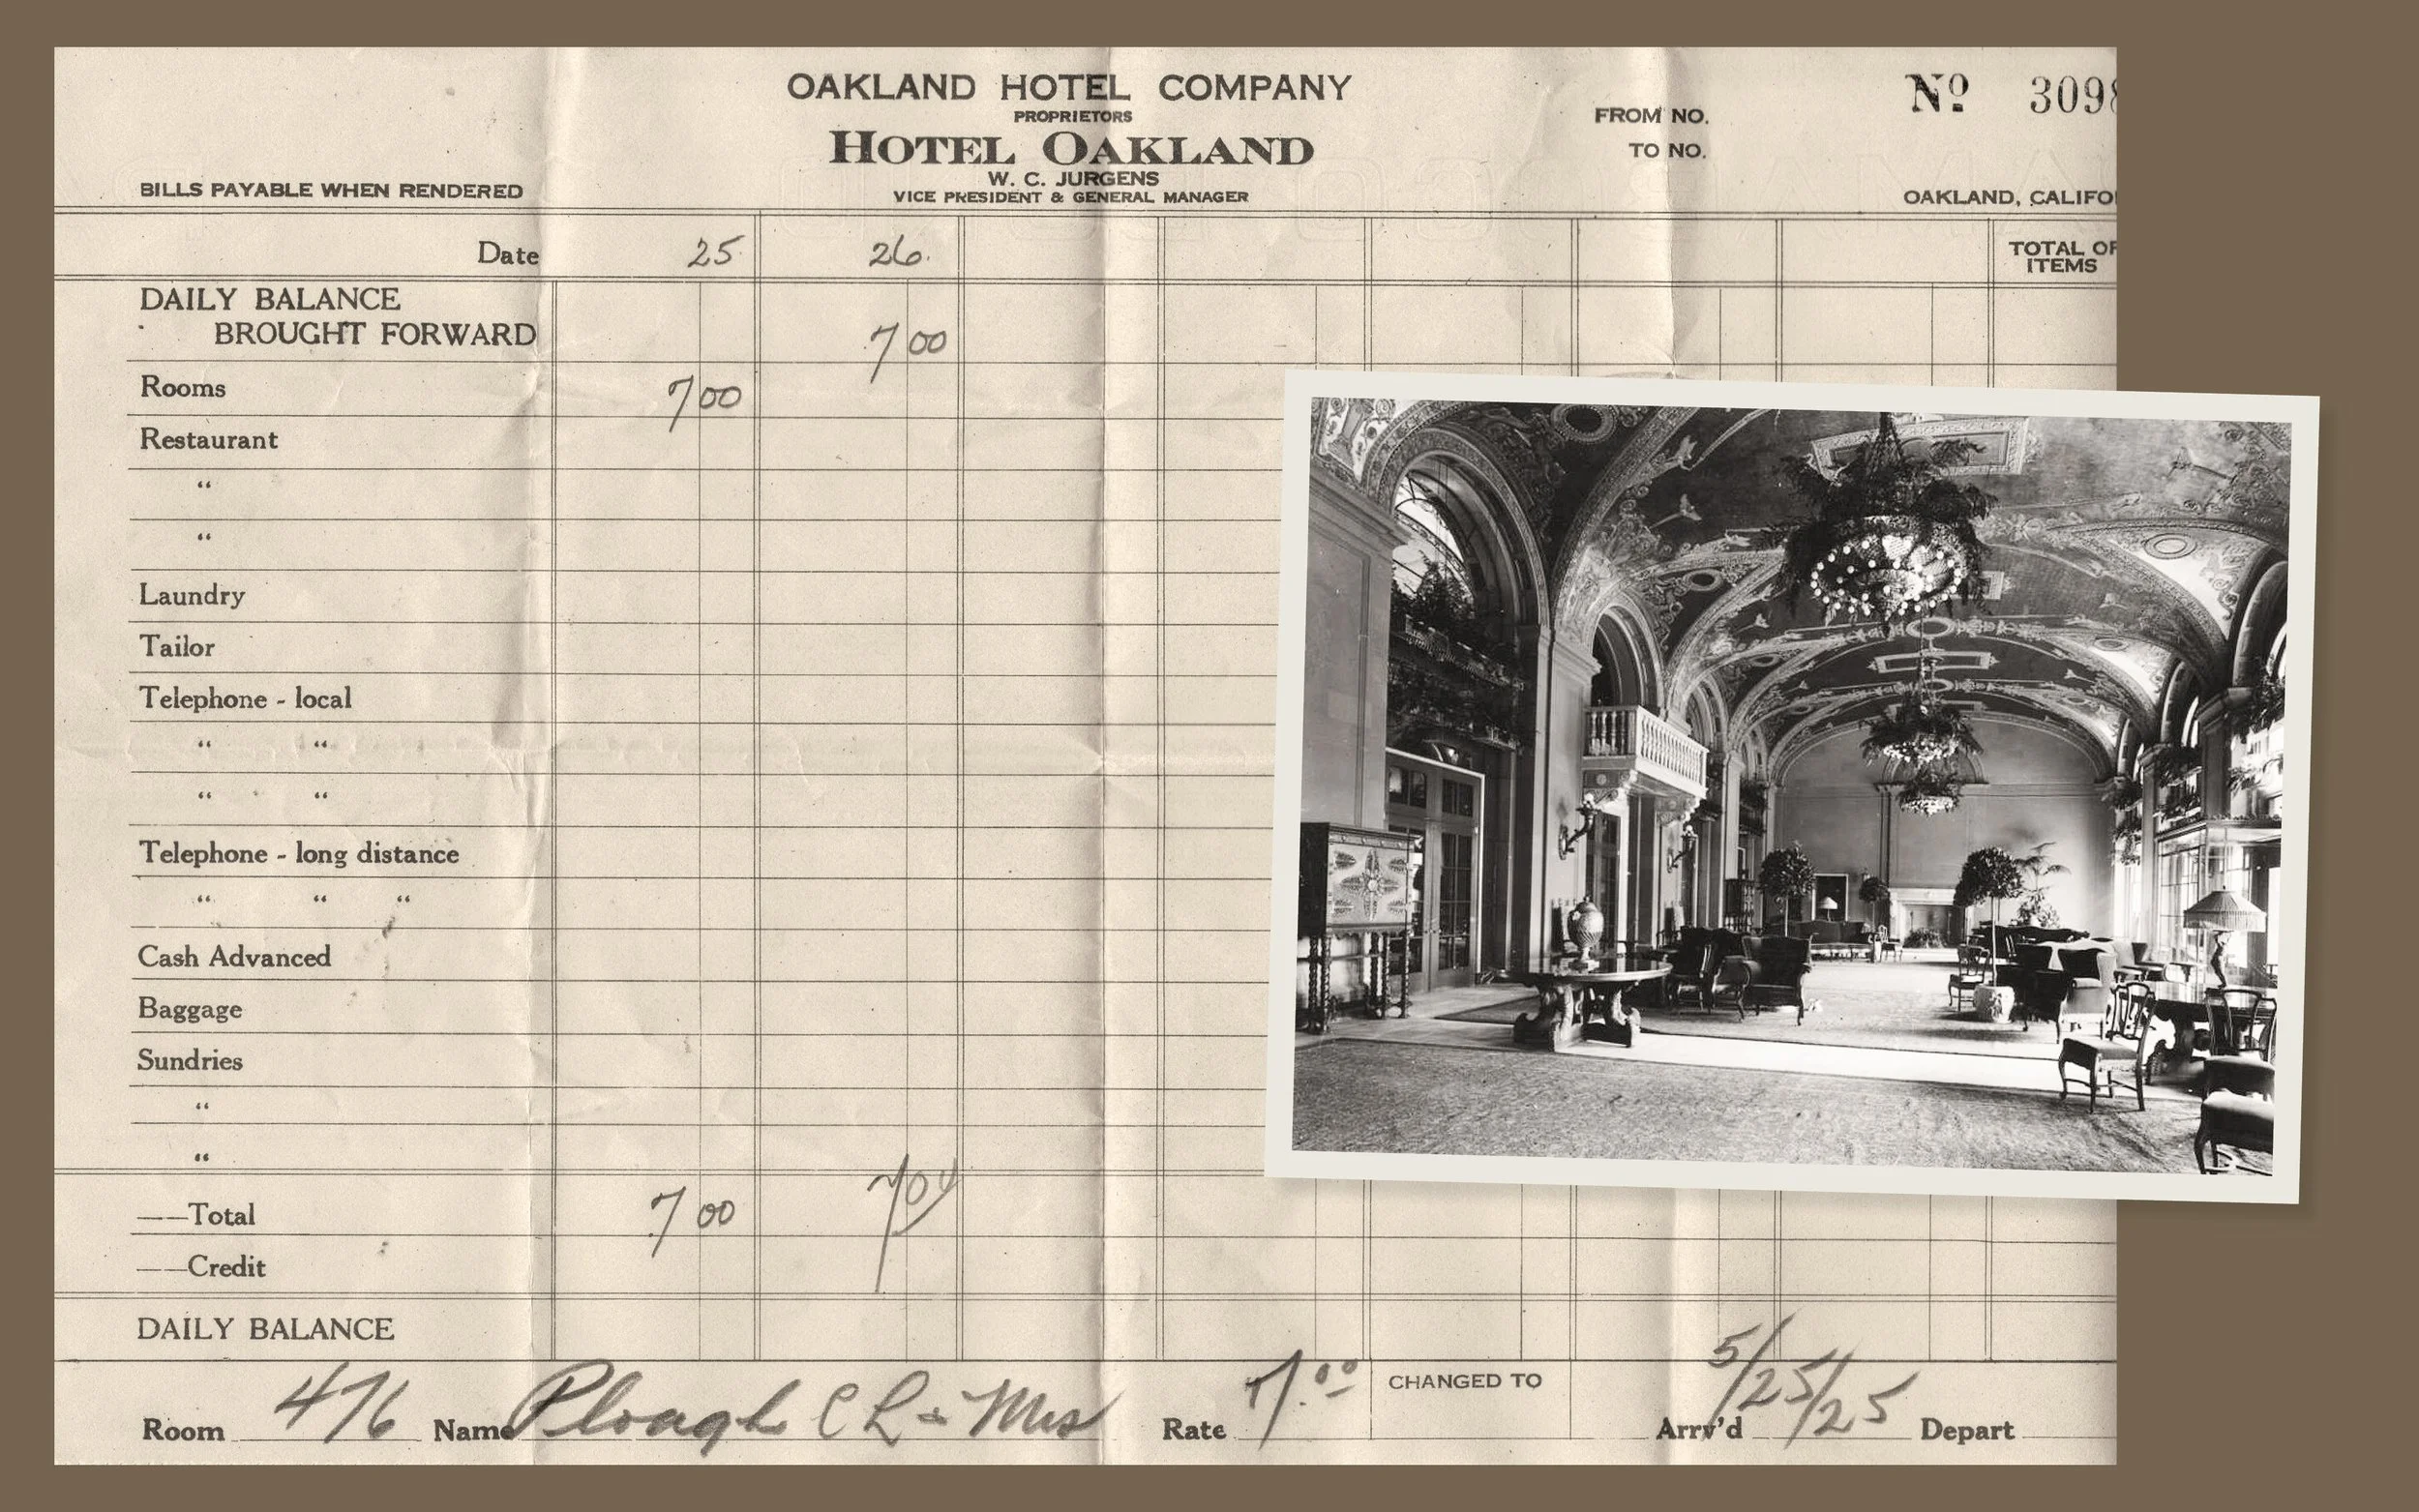 OAKLAND HOTEL COMPANY
PROPRIETORS
HOTEL OAKLAND
W. C. JURGENS
VICE PRESIDENT & GENERAL MANAGER
BILLS PAYABLE WHEN RENDERED
FROM NO.
TO NO.
Nº 3098
OAKLAND, CALIFO
Date 25 26
TOTAL OF
ITEMS
DAILY BALANCE
BROUGHT FORWARD 7 00
Rooms 7 00
Restaurant
“
“
Laundry
Tailor
Telephone - local
“ “
“ “
Telephone - long distance
“ “ “
Cash Advanced
Baggage
Sundries
“
“
Total 7 00
Credit
DAILY BALANCE
Room 476 Name Plough C L & Mrs Rate 7.00 CHANGED TO Arrv'd 5/25/25 Depart